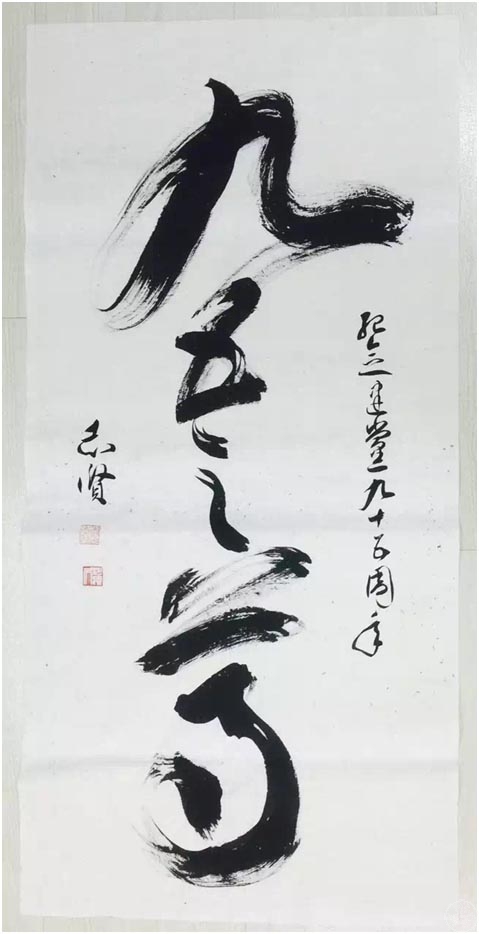 纪念建党九十五周年
九五之尊
志贤